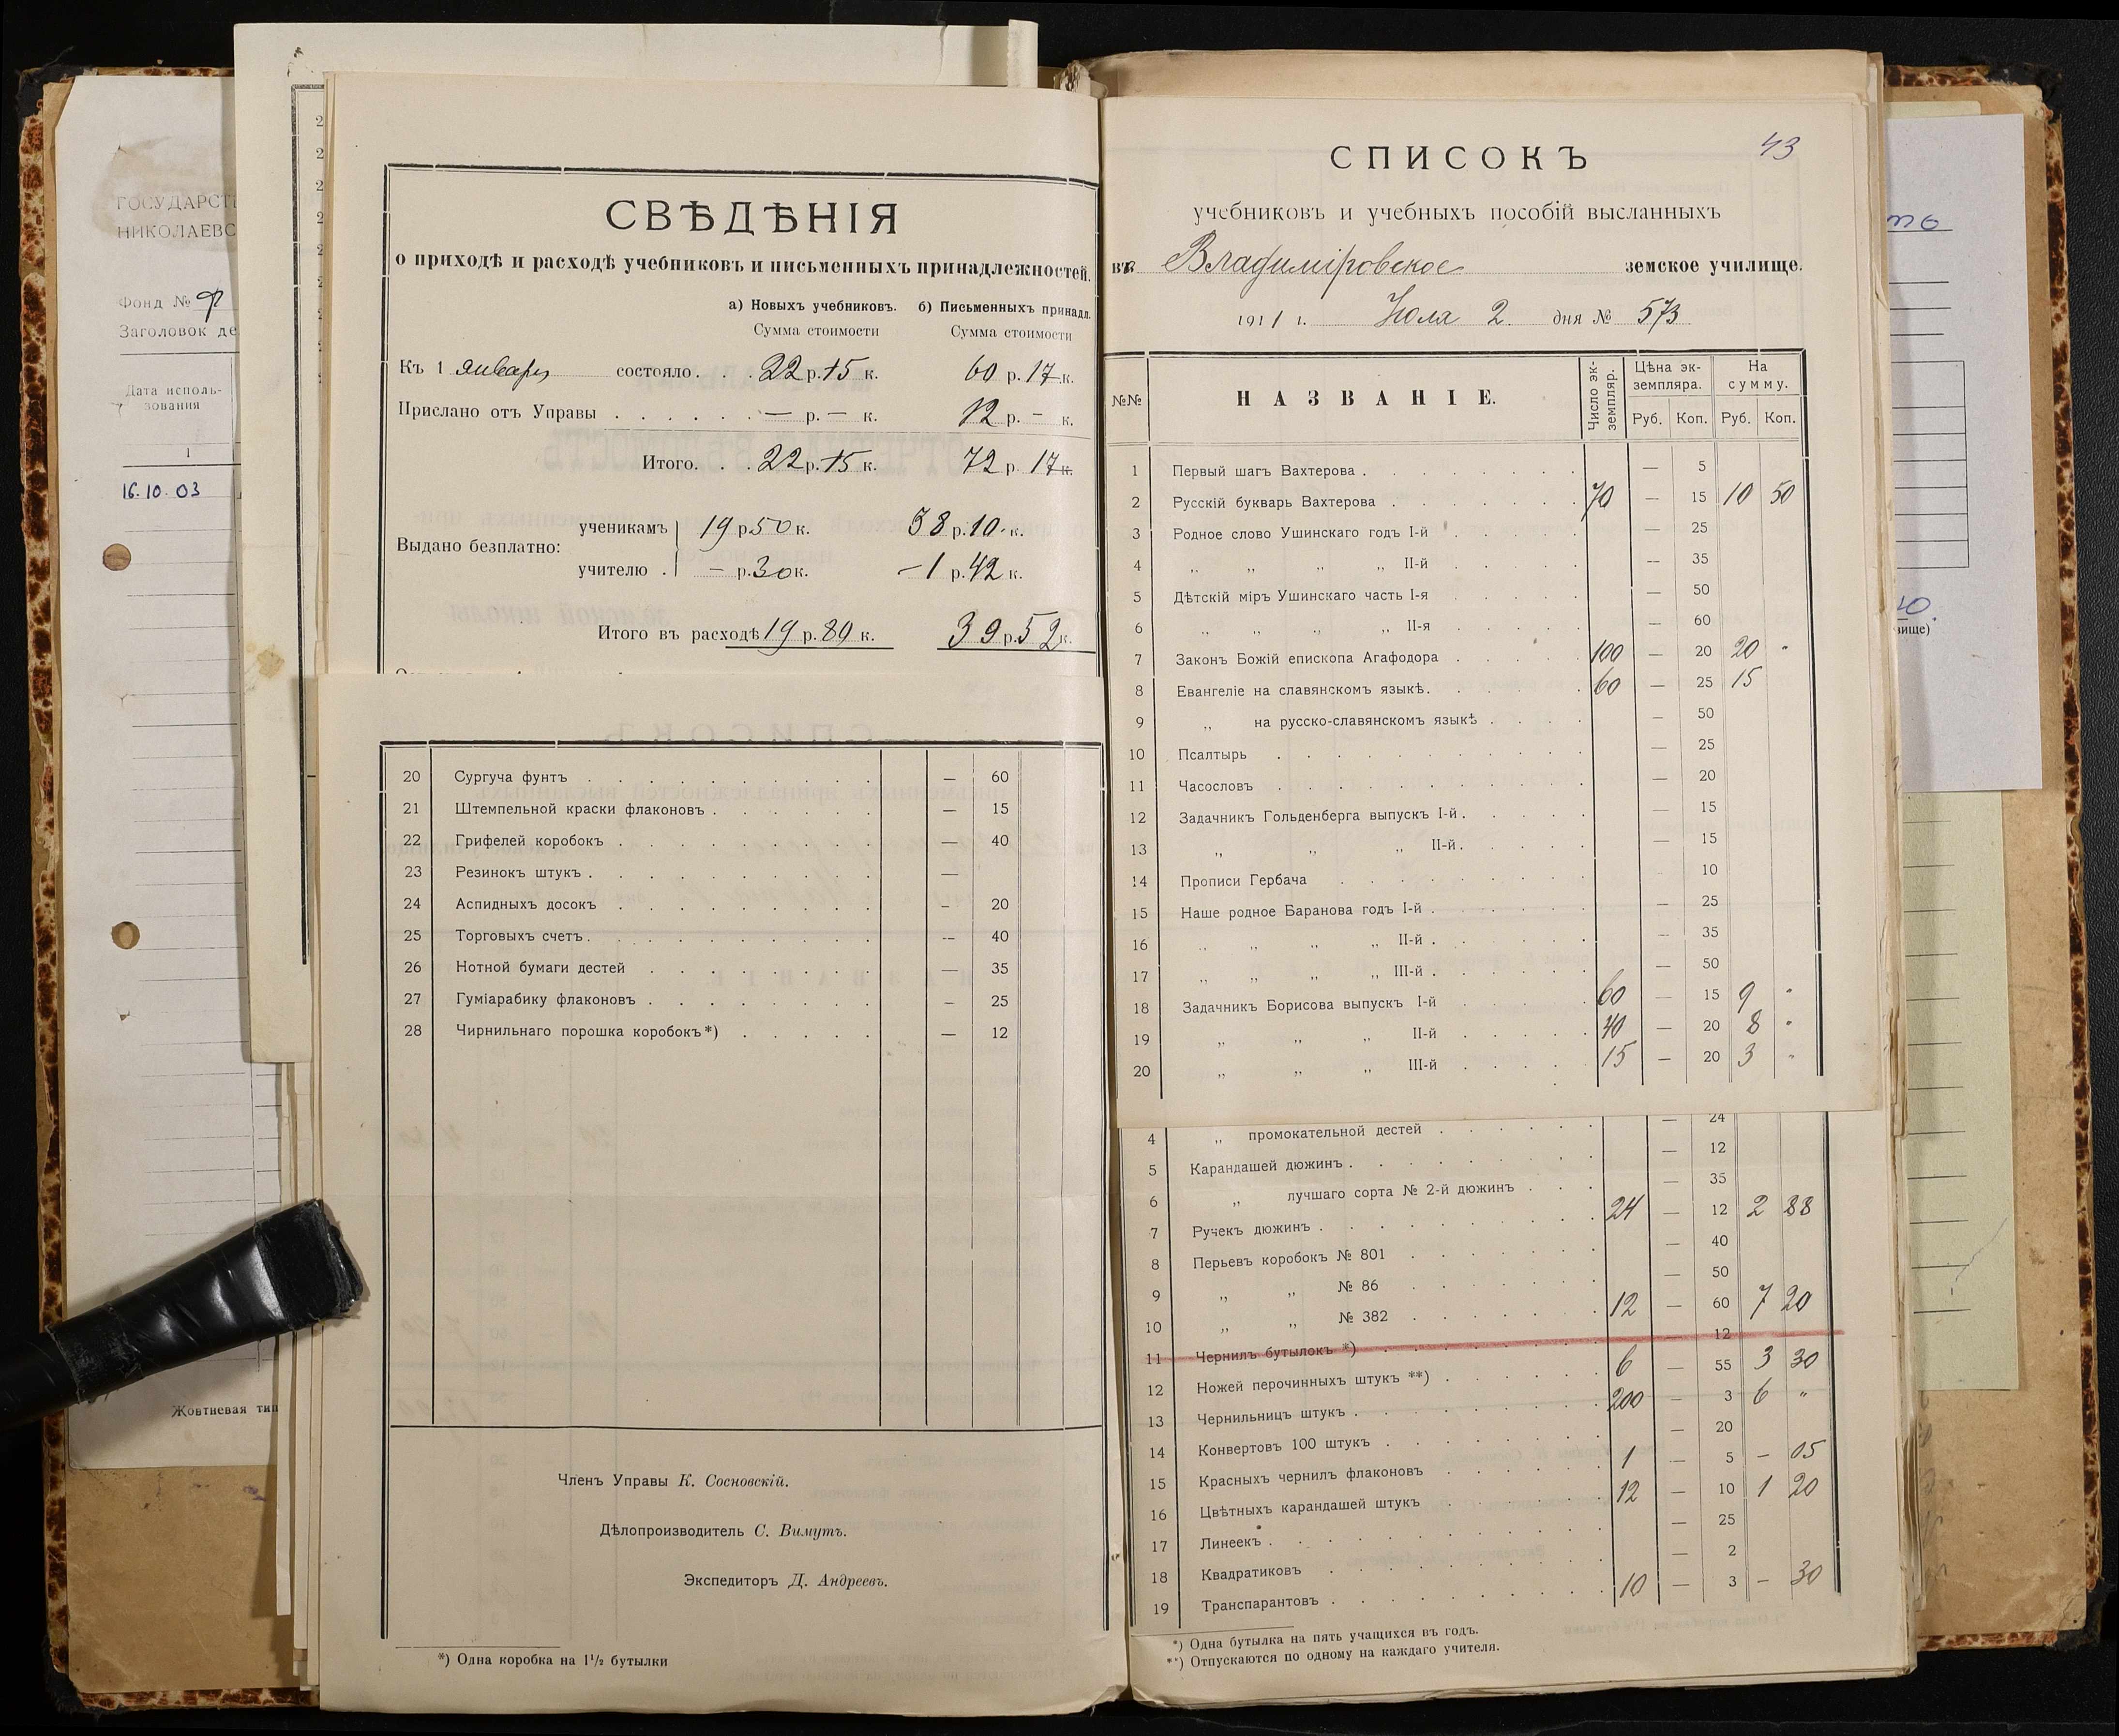 ГОСУДАРСТ
НИКОЛАЕВС
Фонд №
Заголовок де
Дата исполь-
зования
1
16.10.03
Жовтневая тип
СВѢДѢНІЯ
о приходѣ и расходѣ учебниковъ и письменныхъ принадлежностей.
а) Новыхъ учебниковъ. б) Письменныхъ принадл.
Сумма стоимости Сумма стоимости
Къ 1 января состояло . . . 22 р. 15 к. 60 р. 17 к.
Прислано отъ Управы . . . . . . — р. — к. 12 р. - к.
Итого. . . 22 р. 15 к. 72 р. 17 к.
Выдано безплатно:
ученикамъ 19 р. 50 к. 38 р. 10 к.
учителю . — р. 30 к. — 1 р. 42 к.
Итого въ расходѣ 19 р. 80 к. 39 р. 52 к.
20 Сургуча фунтъ — 60
21 Штемпельной краски флаконовъ — 15
22 Грифелей коробокъ — 40
23 Резинокъ штукъ —
24 Аспидныхъ досокъ — 20
25 Торговыхъ счетъ — 40
26 Нотной бумаги дестей — 35
27 Гуміарабику флаконовъ — 25
28 Чирнильнаго порошка коробокъ*) — 12
Членъ Управы К. Сосновскій.
Дѣлопроизводитель С. Вимутъ.
Экспедиторъ Д. Андреевъ.
*) Одна коробка на 1½ бутылки
43
СПИСОКЪ
учебниковъ и учебныхъ пособій высланныхъ
въ Владиміровское земское училище.
1911 г. Іюля 2 дня № 573
№№ НАЗВАНІЕ. Число эк-земпляр. Цѣна эк-земпляра. На сумму.
Руб. Коп. Руб. Коп.
1 Первый шагъ Вахтерова — 5
2 Русскій букварь Вахтерова 70 — 15 10 50
3 Родное слово Ушинскаго годъ I-й — 25
4 „ „ „ „ II-й — 35
5 Дѣтскій міръ Ушинскаго часть I-я — 50
6 „ „ „ „ II-я — 60
7 Законъ Божій епископа Агафодора 100 — 20 20 "
8 Евангеліе на славянскомъ языкѣ 60 — 25 15
9 „ на русско-славянскомъ языкѣ — 50
10 Псалтырь — 25
11 Часословъ — 20
12 Задачникъ Гольденберга выпускъ I-й — 15
13 „ „ „ II-й — 15
14 Прописи Гербача 10
15 Наше родное Баранова годъ I-й — 25
16 „ „ „ „ II-й — 35
17 „ „ „ „ III-й — 50
18 Задачникъ Борисова выпускъ I-й 60 — 15 9 "
19 „ „ „ II-й 40 — 20 8 "
20 „ „ „ III-й 15 — 20 3 "
4 „ промокательной дестей — 24
5 Карандашей дюжинъ — 12
6 „ лучшаго сорта № 2-й дюжинъ — 35
7 Ручекъ дюжинъ 24 — 12 2 88
8 Перьевъ коробокъ № 801 — 40
9 „ „ № 86 — 50
10 „ „ № 382 12 — 60 7 20
11 Чернилъ бутылокъ *) — 12
12 Ножей перочинныхъ штукъ **) 6 — 55 3 30
13 Чернильницъ штукъ 200 — 3 6 "
14 Конвертовъ 100 штукъ — 20
15 Красныхъ чернилъ флаконовъ 1 — 5 — 05
16 Цвѣтныхъ карандашей штукъ 12 — 10 1 20
17 Линеекъ — 25
18 Квадратиковъ — 2
19 Транспарантовъ 10 — 3 — 30
*) Одна бутылка на пять учащихся въ годъ.
**) Отпускаются по одному на каждаго учителя.